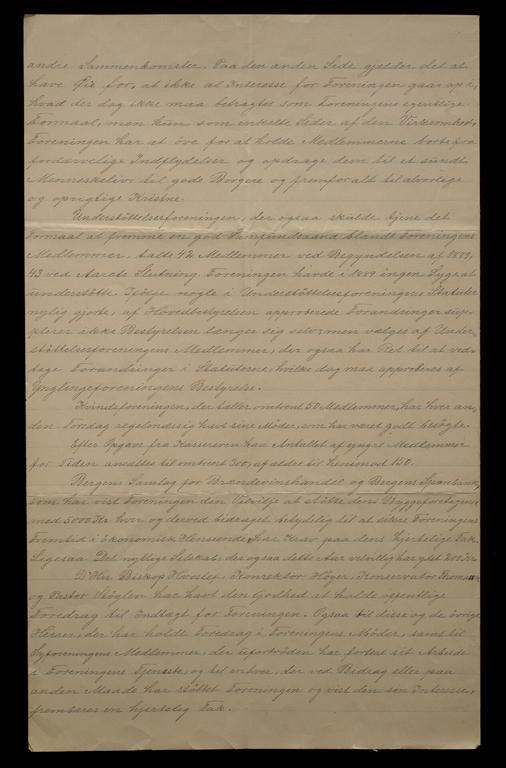 andre Sammenkomster. Paa den anden Side gjelder det at
have Øie for, at ikke al Interesse for Foreningen gaar op i,
hvad der dog ikke maa betragtes som Foreningens egentlige
Formaal, men kun som enkelte Sider af den Virksomhed,
Foreningen har at öve for at holde Medlemmerne borte fra
fordærvelige Indflydelser og opdrage dem til et sundt
Menneskeliv, til gode Borgere og fremfor alt til alvorlige
og oprigtige Kristne.
Understöttelsesforeningen, der ogsaa skulde tjene det
Formaal at fremme en god Samfundsaand blandt Foreningens
Medlemmer, talte 42 Medlemmer ved Begyndelsen af 1889,
43 ved Aarets Slutning. Foreningen havde i 1889 ingen Syge at
understötte. Ifölge nogle i Understöttelsesforeningens Statuter
nylig gjorte, af Hovedbestyrelsen approberede Forandringer sup-
plerer ikke Bestyrelsen længer sig selv, men vælges af Under-
stöttelsesforeningens Medlemmer, der ogsaa har Ret til at ved-
tage Forandringer i Statuterne, hvilke dog maa approberes af
Ynglingeforeningens Bestyrelse.
Kvindeforeningen, der tæller omtrent 50 Medlemmer, har hver an-
den Torsdag regelmæssig havt sine Möder, som har været godt besögte.
Efter Opgave fra Kassereren kan Antallet af yngre Medlemmer
for Tiden ansættes til omtrent 300, af ældre til henimod 150.
Bergens Samlag for Brændevinshandel og Bergens Sparebank,
som har vist Foreningen den Velvilje at stötte dens Byggeforetagende
med 5000 Kr hver og derved bidraget betydelig til at sikre Foreningens
Fremtid i ökonomisk Henseende, har Krav paa dens hjertelige Tak.
Ligesaa Det nyttige Selskab, der ogsaa dette Aar velvillig har ydet 200 Kr.
D'Hrr. Biskop Hvoslef, Konrektor Höyer, Konservator
og Pastor Sköglen har havt den Godhed at holde offentlige
Foredrag til Indtægt for Foreningen. Ogsaa til disse og de övrige
Herrer, der har holdt Foredrag i Foreningens Möder, samt til
Syforeningens Medlemmer, der ufortröden har fortsat sit Arbeide
i Foreningens Tjeneste, og til enhver, der ved Bidrag eller paa
anden Maade har stöttet Foreningen og vist den sin Interesse,
fremböres en hjertelig Tak.